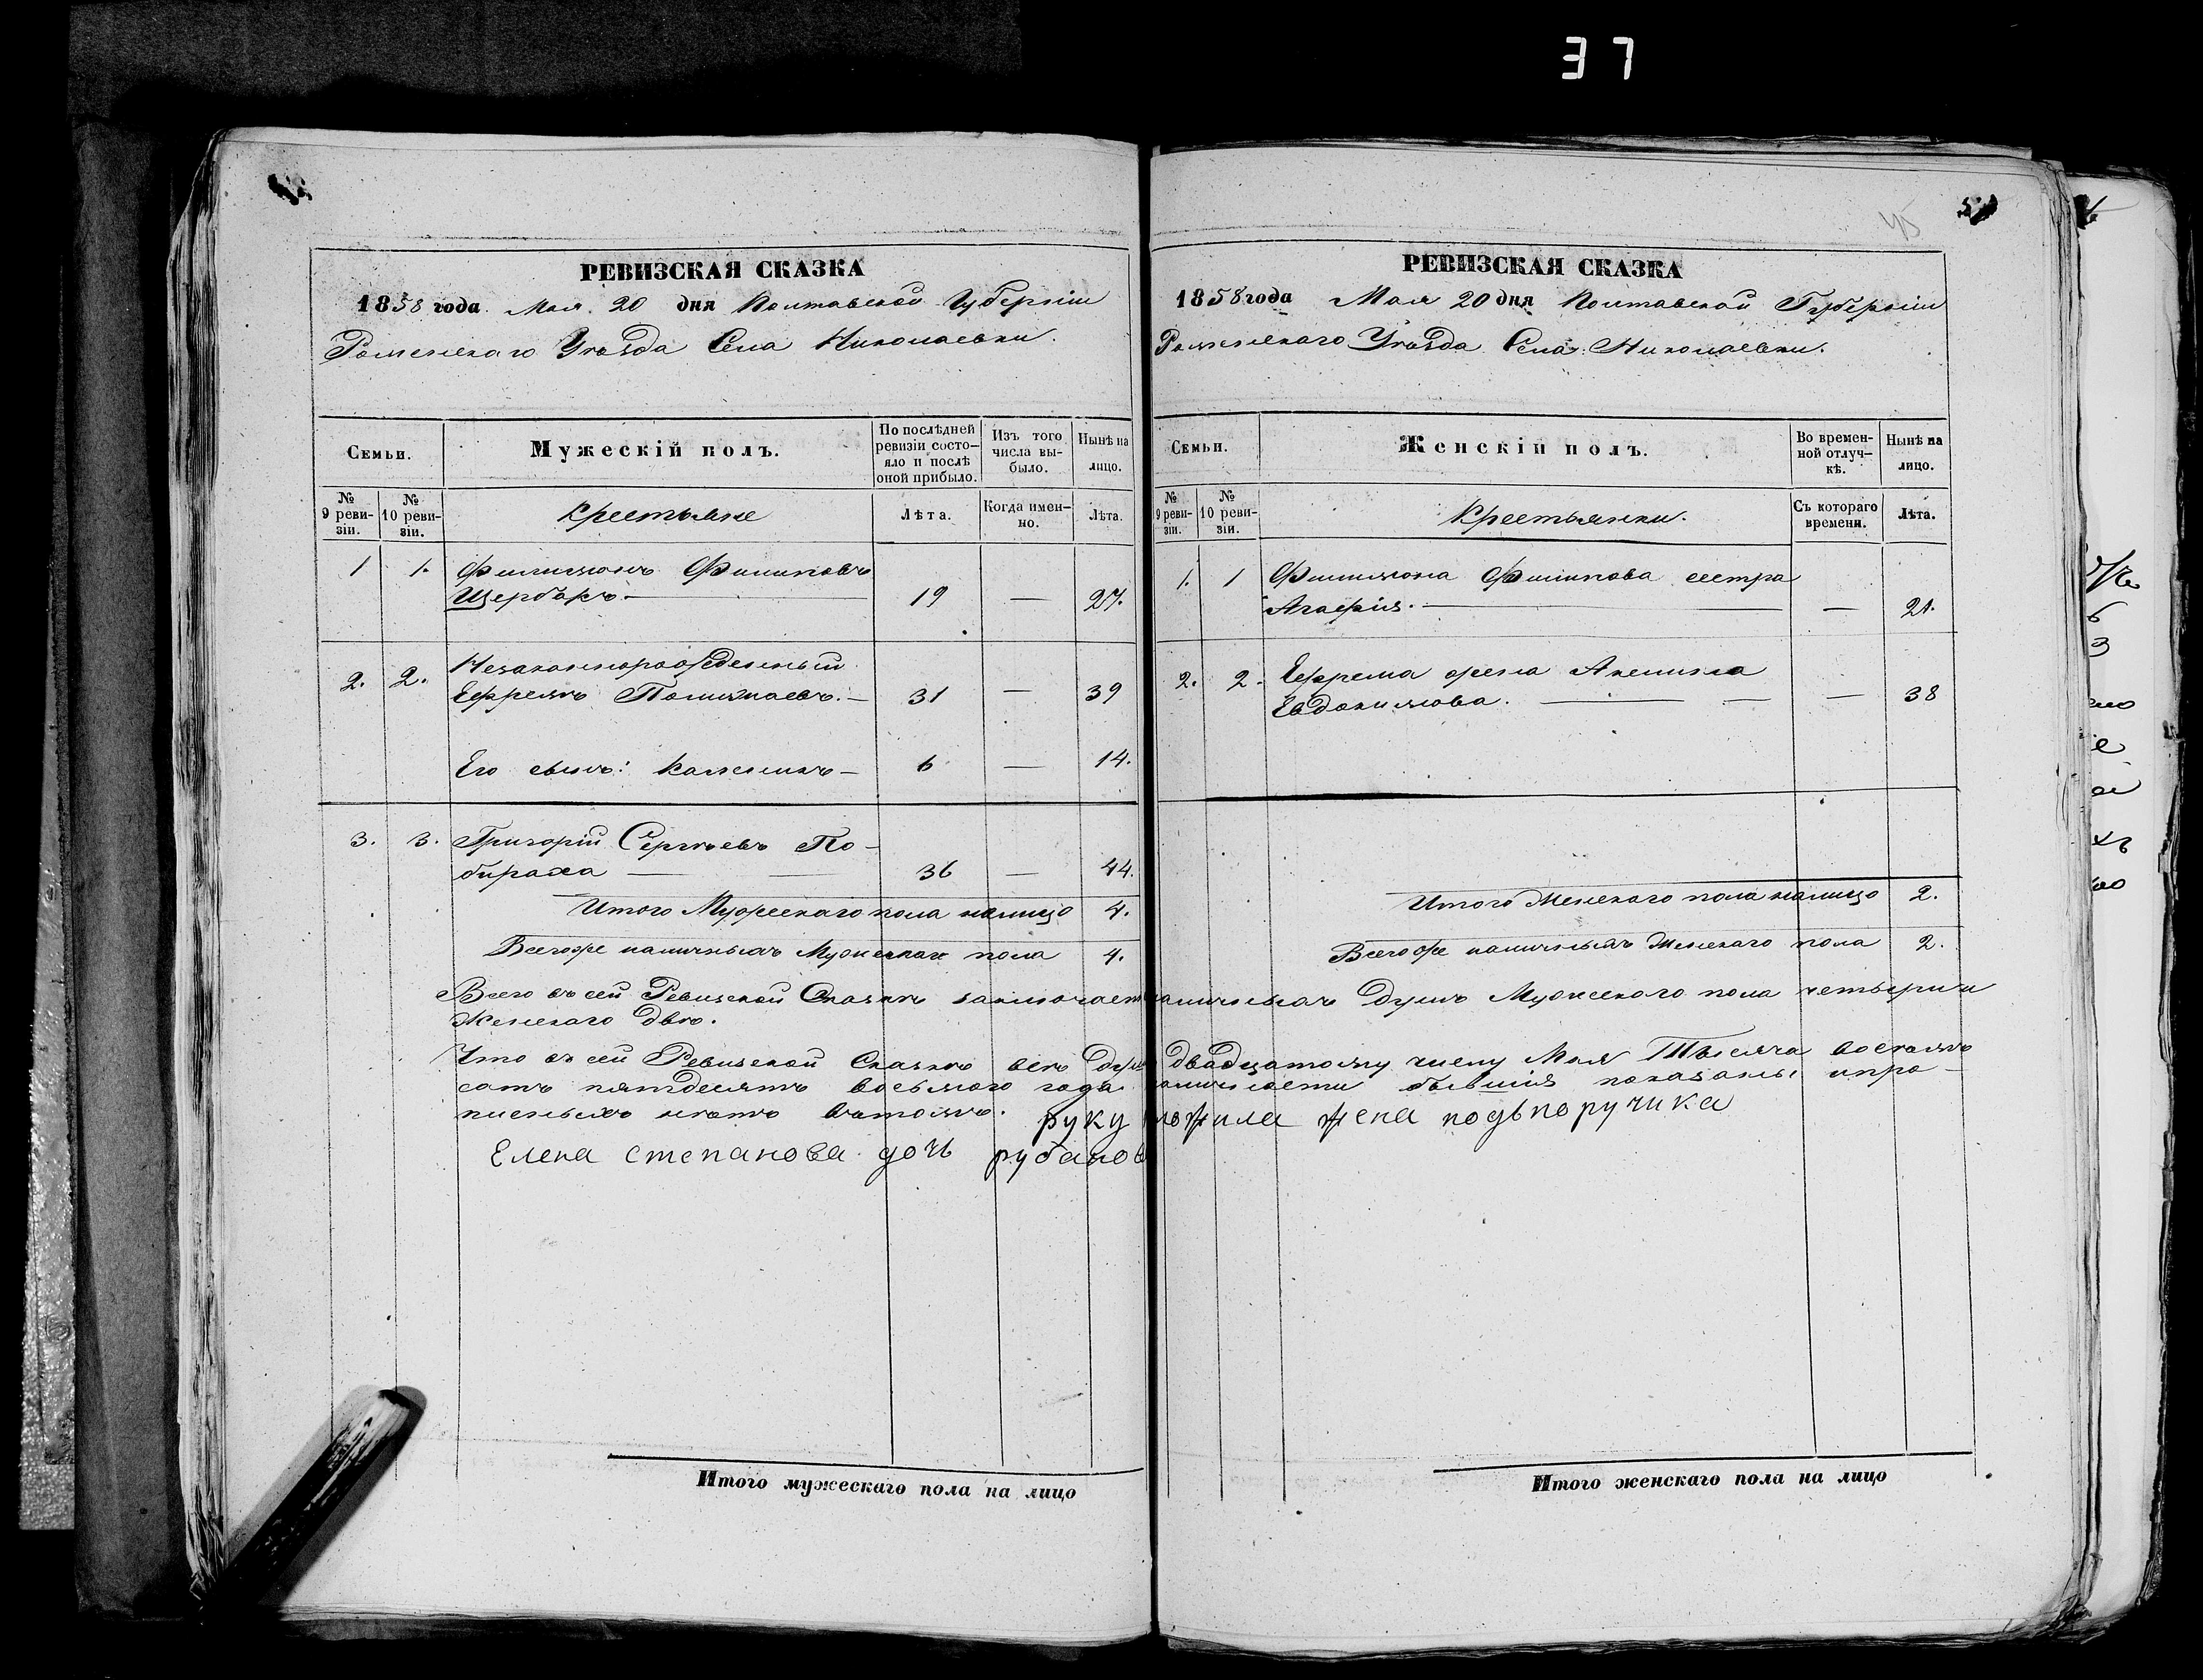 37
РЕВИЗСКАЯ СКАЗКА
1858 года Мая 20 дня Полтавской Губерніи
Роменскаго Уѣзда Села Николаевки.
Семьи.
Мужескій полъ.
По послѣдней ревизіи состо-
яло и послѣ оной прибыло.
Изъ того числа вы-
было.
Нынѣ на лицо.
№ 9 реви-
зіи.
№ 10 реви-
зіи.
Крестьяне
Лѣта.
Когда имен-
но.
Лѣта.
1 1. Филимонъ Филиповъ
Щербакъ — 19 — 27.
2. 2. Незаконнорожденный
Ефремъ — 31 — 39
Его сынъ: — 6 — 14.
3. 3. Григорій Сергѣевъ По-
бираха — 36 — 44.
Итого Мужескаго пола налицо 4.
Всего же наличныхъ Мужескаго пола 4.
РЕВИЗСКАЯ СКАЗКА
1858 года Мая 20 дня Полтавской Губерніи
Роменскаго Уѣзда Села Николаевки.
45
Семьи.
Женскій полъ.
Во времен-
ной отлуч-
кѣ.
Нынѣ на лицо.
№ 9 реви-
зіи.
№ 10 реви-
зіи.
Крестьянки.
Съ котораго времени.
Лѣта.
1. 1 Филимона Филипова сестра
Агафія. — — 21.
2. 2. Ефрема жена Акилина
Евдокимова. — — 38
Итого Женскаго пола налицо 2.
Всего же наличныхъ Женскаго пола 2.
Всего въ сей Ревизской Сказкѣ заключает наличныхъ душъ Мужескаго пола четыре и
Женскаго двѣ.
Что въ сей Ревизской Сказкѣ всѣ душ двадцатому числу Мая Тысяча восемь
сотъ пятдесятъ восьмого года наличности бывшія показаны и про-
писныхъ нѣтъ въ томъ. руку ложила жена подьпоручика
Елена степанова дочь рубанов
Итого мужескаго пола на лицо
Итого женскаго пола на лицо